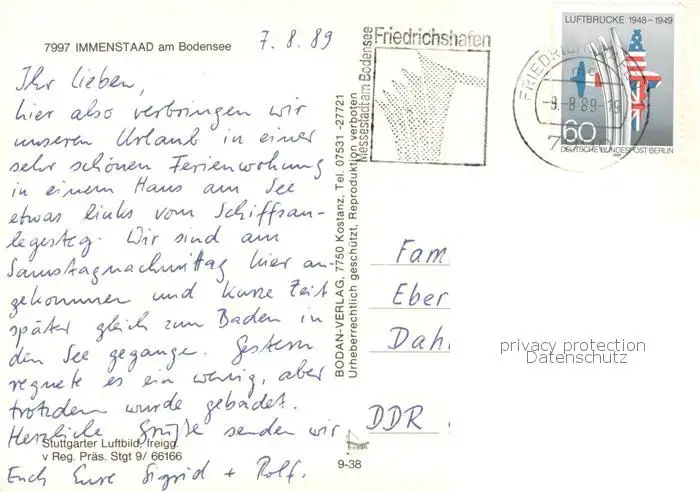 7997 IMMENSTAAD am Bodensee
7.8.89
Ihr Lieben,
hier also verbringen wir
unseren Urlaub in einer
sehr schönen Ferienwohnung
in einem Haus am See
etwas links vom Schiffsan-
legesteg. Wir sind am
Samstagnachmittag hier an-
gekommen und kurze Zeit
später gleich zum Baden in
den See gegange. Gestern
regnete es ein wenig, aber
trotzdem wurde gebadet.
Herzliche Grüße senden wir
Euch Eure Sigrid + Rolf.
Stuttgarter Luftbild, freigg.
v Reg. Präs. Stgt 9/ 66166
BODAN-VERLAG, 7750 Kostanz, Tel. 07531-27721
Urheberrechtlich geschützt, Reproduktion verboten
bodan
9-38
Friedrichshafen
Messestadt am Bodensee
LUFTBRÜCKE 1948-1949
60
DEUTSCHE BUNDESPOST BERLIN
-8.-8.89-19
Fam
Eber
Dahl
DDR
privacy protection
Datenschutz